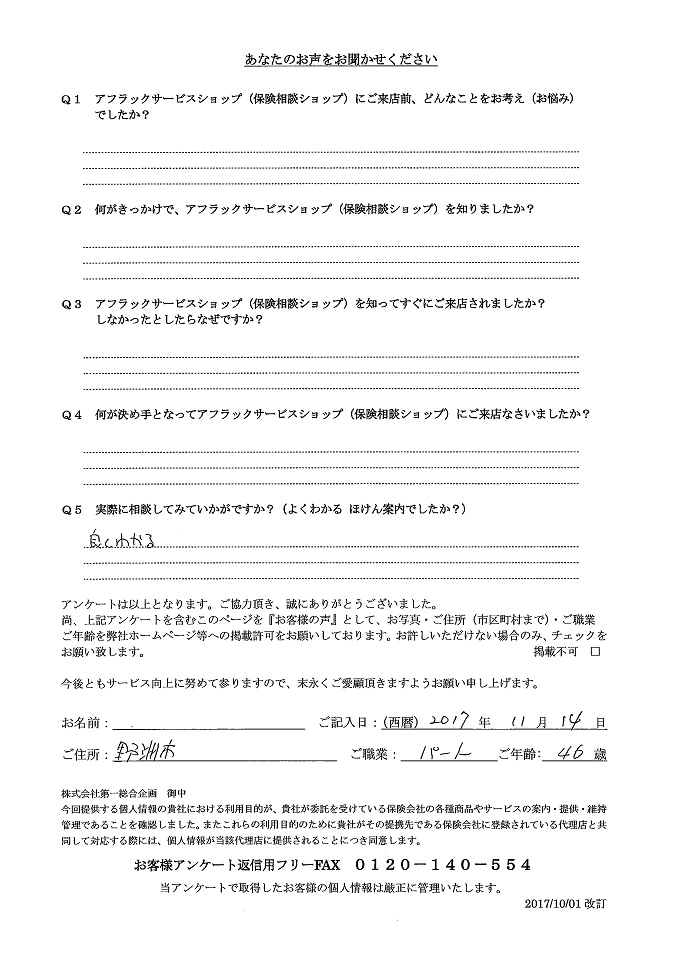 あなたのお声をお聞かせください
Q1 アフラックサービスショップ（保険相談ショップ）にご来店前、どんなことをお考え（お悩み）
でしたか？
Q2 何がきっかけで、アフラックサービスショップ（保険相談ショップ）を知りましたか？
Q3 アフラックサービスショップ（保険相談ショップ）を知ってすぐにご来店されましたか？
しなかったとしたらなぜですか？
Q4 何が決め手となってアフラックサービスショップ（保険相談ショップ）にご来店なさいましたか？
Q5 実際に相談してみていかがですか？（よくわかる ほけん案内でしたか？）
良くわかる
アンケートは以上となります。ご協力頂き、誠にありがとうございました。
尚、上記アンケートを含むこのページを『お客様の声』として、お写真・ご住所（市区町村まで）・ご職業
ご年齢を弊社ホームページ等への掲載許可をお願いしております。お許しいただけない場合のみ、チェックを
お願い致します。 掲載不可 □
今後ともサービス向上に努めて参りますので、末永くご愛顧頂きますようお願い申し上げます。
お名前： ご記入日：（西暦）2017 年 11 月 14 日
ご住所：野洲市 ご職業： パート ご年齢： 46 歳
株式会社第一総合企画 御中
今回提供する個人情報の貴社における利用目的が、貴社が委託を受けている保険会社の各種商品やサービスの案内・提供・維持
管理であることを確認しました。またこれらの利用目的のために貴社がその提携先である保険会社に登録されている代理店と共
同して対応する際には、個人情報が当該代理店に提供されることにつき同意します。
お客様アンケート返信用フリーFAX 0120－140－554
当アンケートで取得したお客様の個人情報は厳正に管理いたします。
2017/10/01 改訂